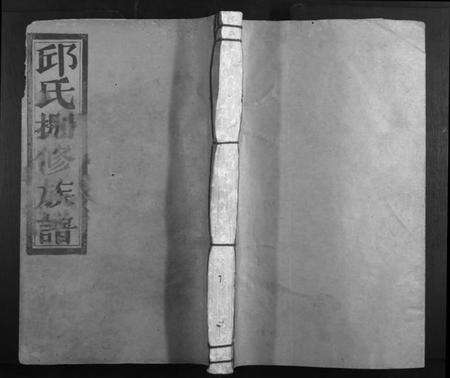 邱氏捌修族譜